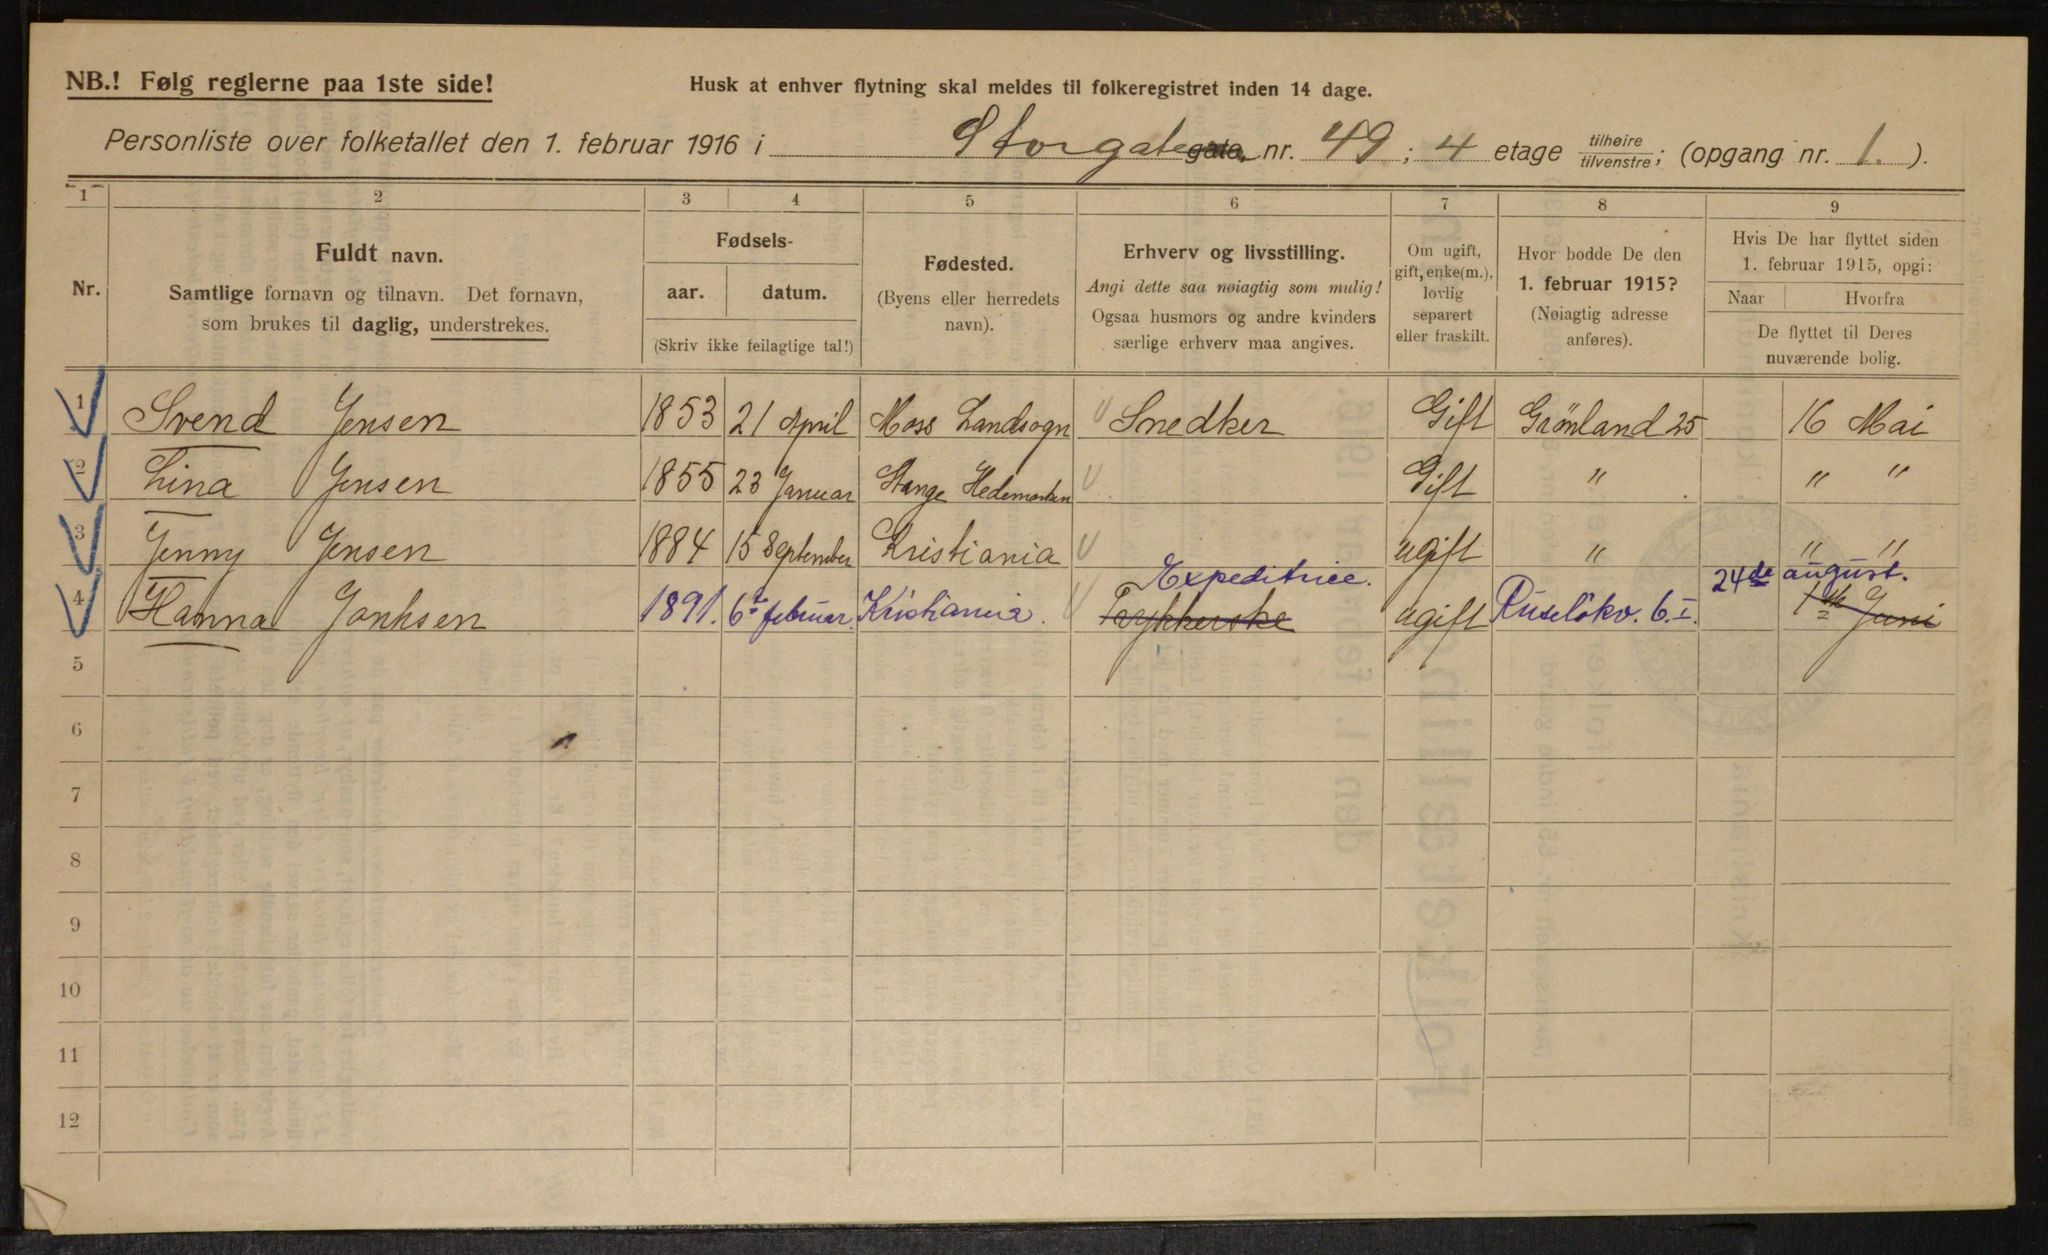 NB.! Følg reglerne paa 1ste side!
Husk at enhver flytning skal meldes til folkeregistret inden 14 dage.
Personliste over folketallet den 1. februar 1916 i Storgaten gata, nr. 49; 4 etage tilhøire tilvenstre; (opgang nr. 1.).
1 2 3 4 5 6 7 8 9
Nr.
Fuldt navn.
Samtlige fornavn og tilnavn. Det fornavn,
som brukes til daglig, understrekes.
Fødsels-
aar. datum.
(Skriv ikke feilagtige tal!)
Fødested.
(Byens eller herredets
navn).
Erhverv og livsstilling.
Angi dette saa nøiagtig som mulig!
Ogsaa husmors og andre kvinders
særlige erhverv maa angives.
Om ugift,
gift, enke(m.),
lovlig
separert
eller fraskilt.
Hvor bodde De den
1. februar 1915?
(Nøiagtig adresse
anføres).
Hvis De har flyttet siden
1. februar 1915, opgi:
Naar Hvorfra
De flyttet til Deres
nuværende bolig.
1 Svend Jensen 1853 21 April Moss Landsogn Snedker Gift Grønland 25 16 Mai
2 Lina Jensen 1855 23 Januar Stange Hedemarken Gift " " "
3 Jenny Jensen 1884 15 September Kristiania ugift " " "
Expeditrice. 24de august.
4 Hanna 1891. 6te februar. Kristiania. Trykkerske ugift Ruseløkv. 6. I. 1ste Juni
5
6
7
8
9
10
11
12